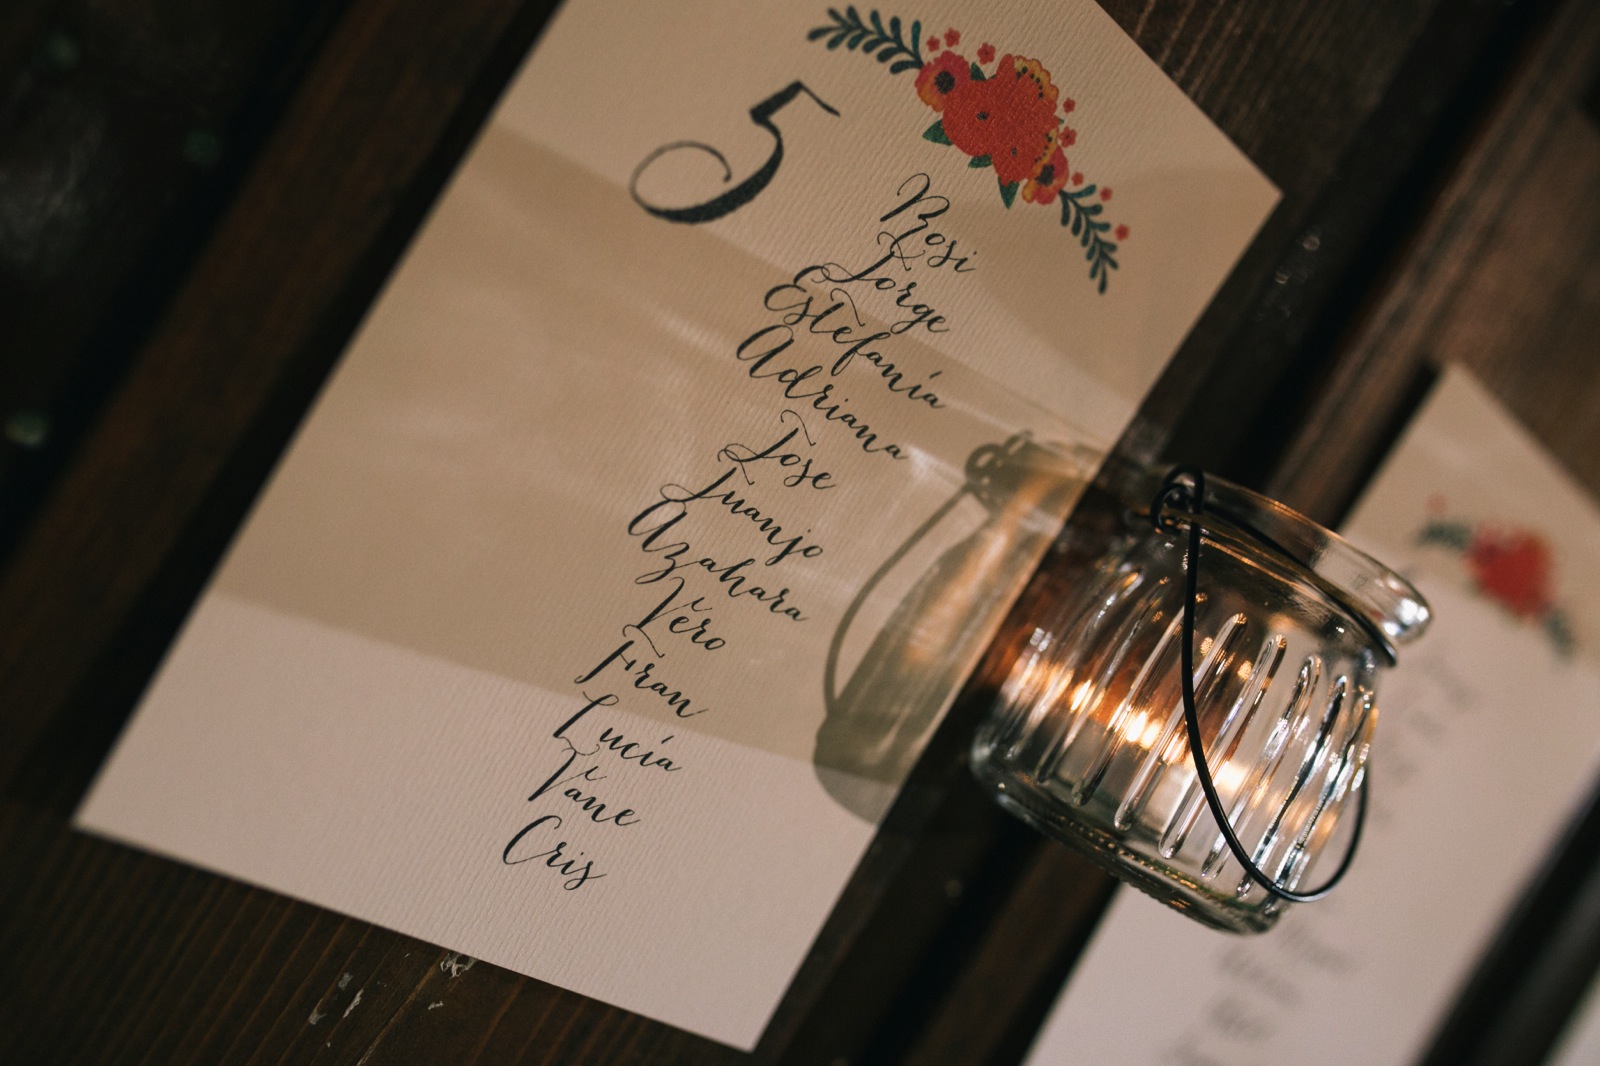 5
Rosi
Jorge
Estefanía
Adriana
Jose
Juanjo
Azahara
Vero
Fran
Lucía
Vane
Cris